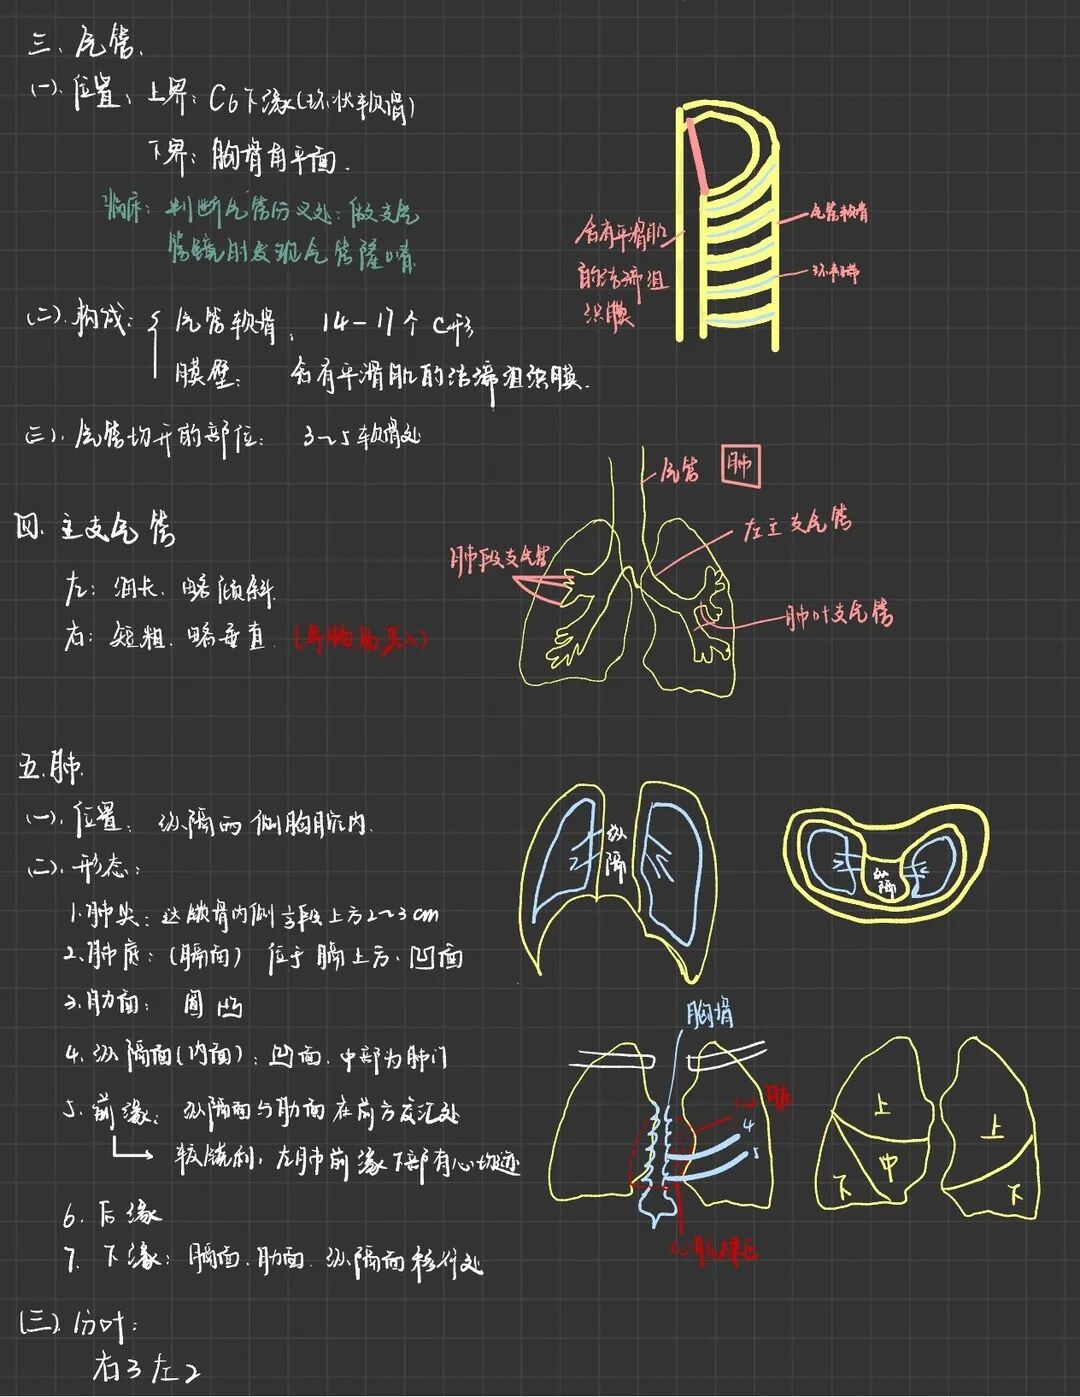 三. 气管.
(一). 位置: 上界: C6下缘(环状软骨)
下界: 胸骨角平面.
临床: 判断气管分叉处: 做支气
管镜时发现气管隆嵴
(二). 构成: { 气管软骨: 14-17个 C形
膜壁: 含有平滑肌的结缔组织膜.
含有平滑肌
的结缔组
织膜
气管软骨
环韧带
(三). 气管切开的部位: 3~5软骨处
四. 主支气管
左: 细长. 略倾斜.
右: 短粗. 略垂直. (异物易坠入)
气管
肺
左主支气管
肺段支气管
肺叶支气管
五. 肺.
(一). 位置: 纵隔两侧胸腔内.
(二). 形态:
1. 肺尖: 达锁骨内侧⅓段上方2~3cm
2. 肺底: (膈面) 位于膈上方. 凹面
3. 肋面: 圆凸
4. 纵隔面(内面): 凹面. 中部为肺门
5. 前缘: 纵隔面与肋面在前方交汇处
→ 较锐利, 左肺前缘下部有心切迹
6. 后缘
7. 下缘: 膈面. 肋面. 纵隔面移行处
纵隔
纵隔
胸骨
4
5
上
中
下
上
下
(三). 分叶:
右3左2